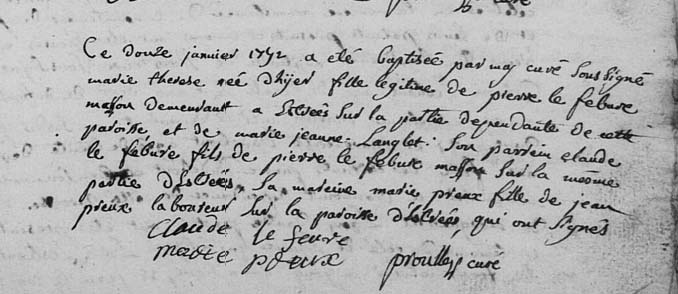 Ce douze janvier 1772 a eté baptisée par moy curé soussigné
marie therese neé d'hijer fille legitime de pierre le febure
masson demeurant a Estreés sur la partie dependante de cette
paroisse, et de marie jeanne Langlet. Son parrein claude
le febure fils de pierre le febure masson sur la même
partie d'Estreés, Sa mareine marie preux fille de jean
preux laboureur sur la paroisse d'Estreés, qui ont signés
claude le feure
marie preux curé